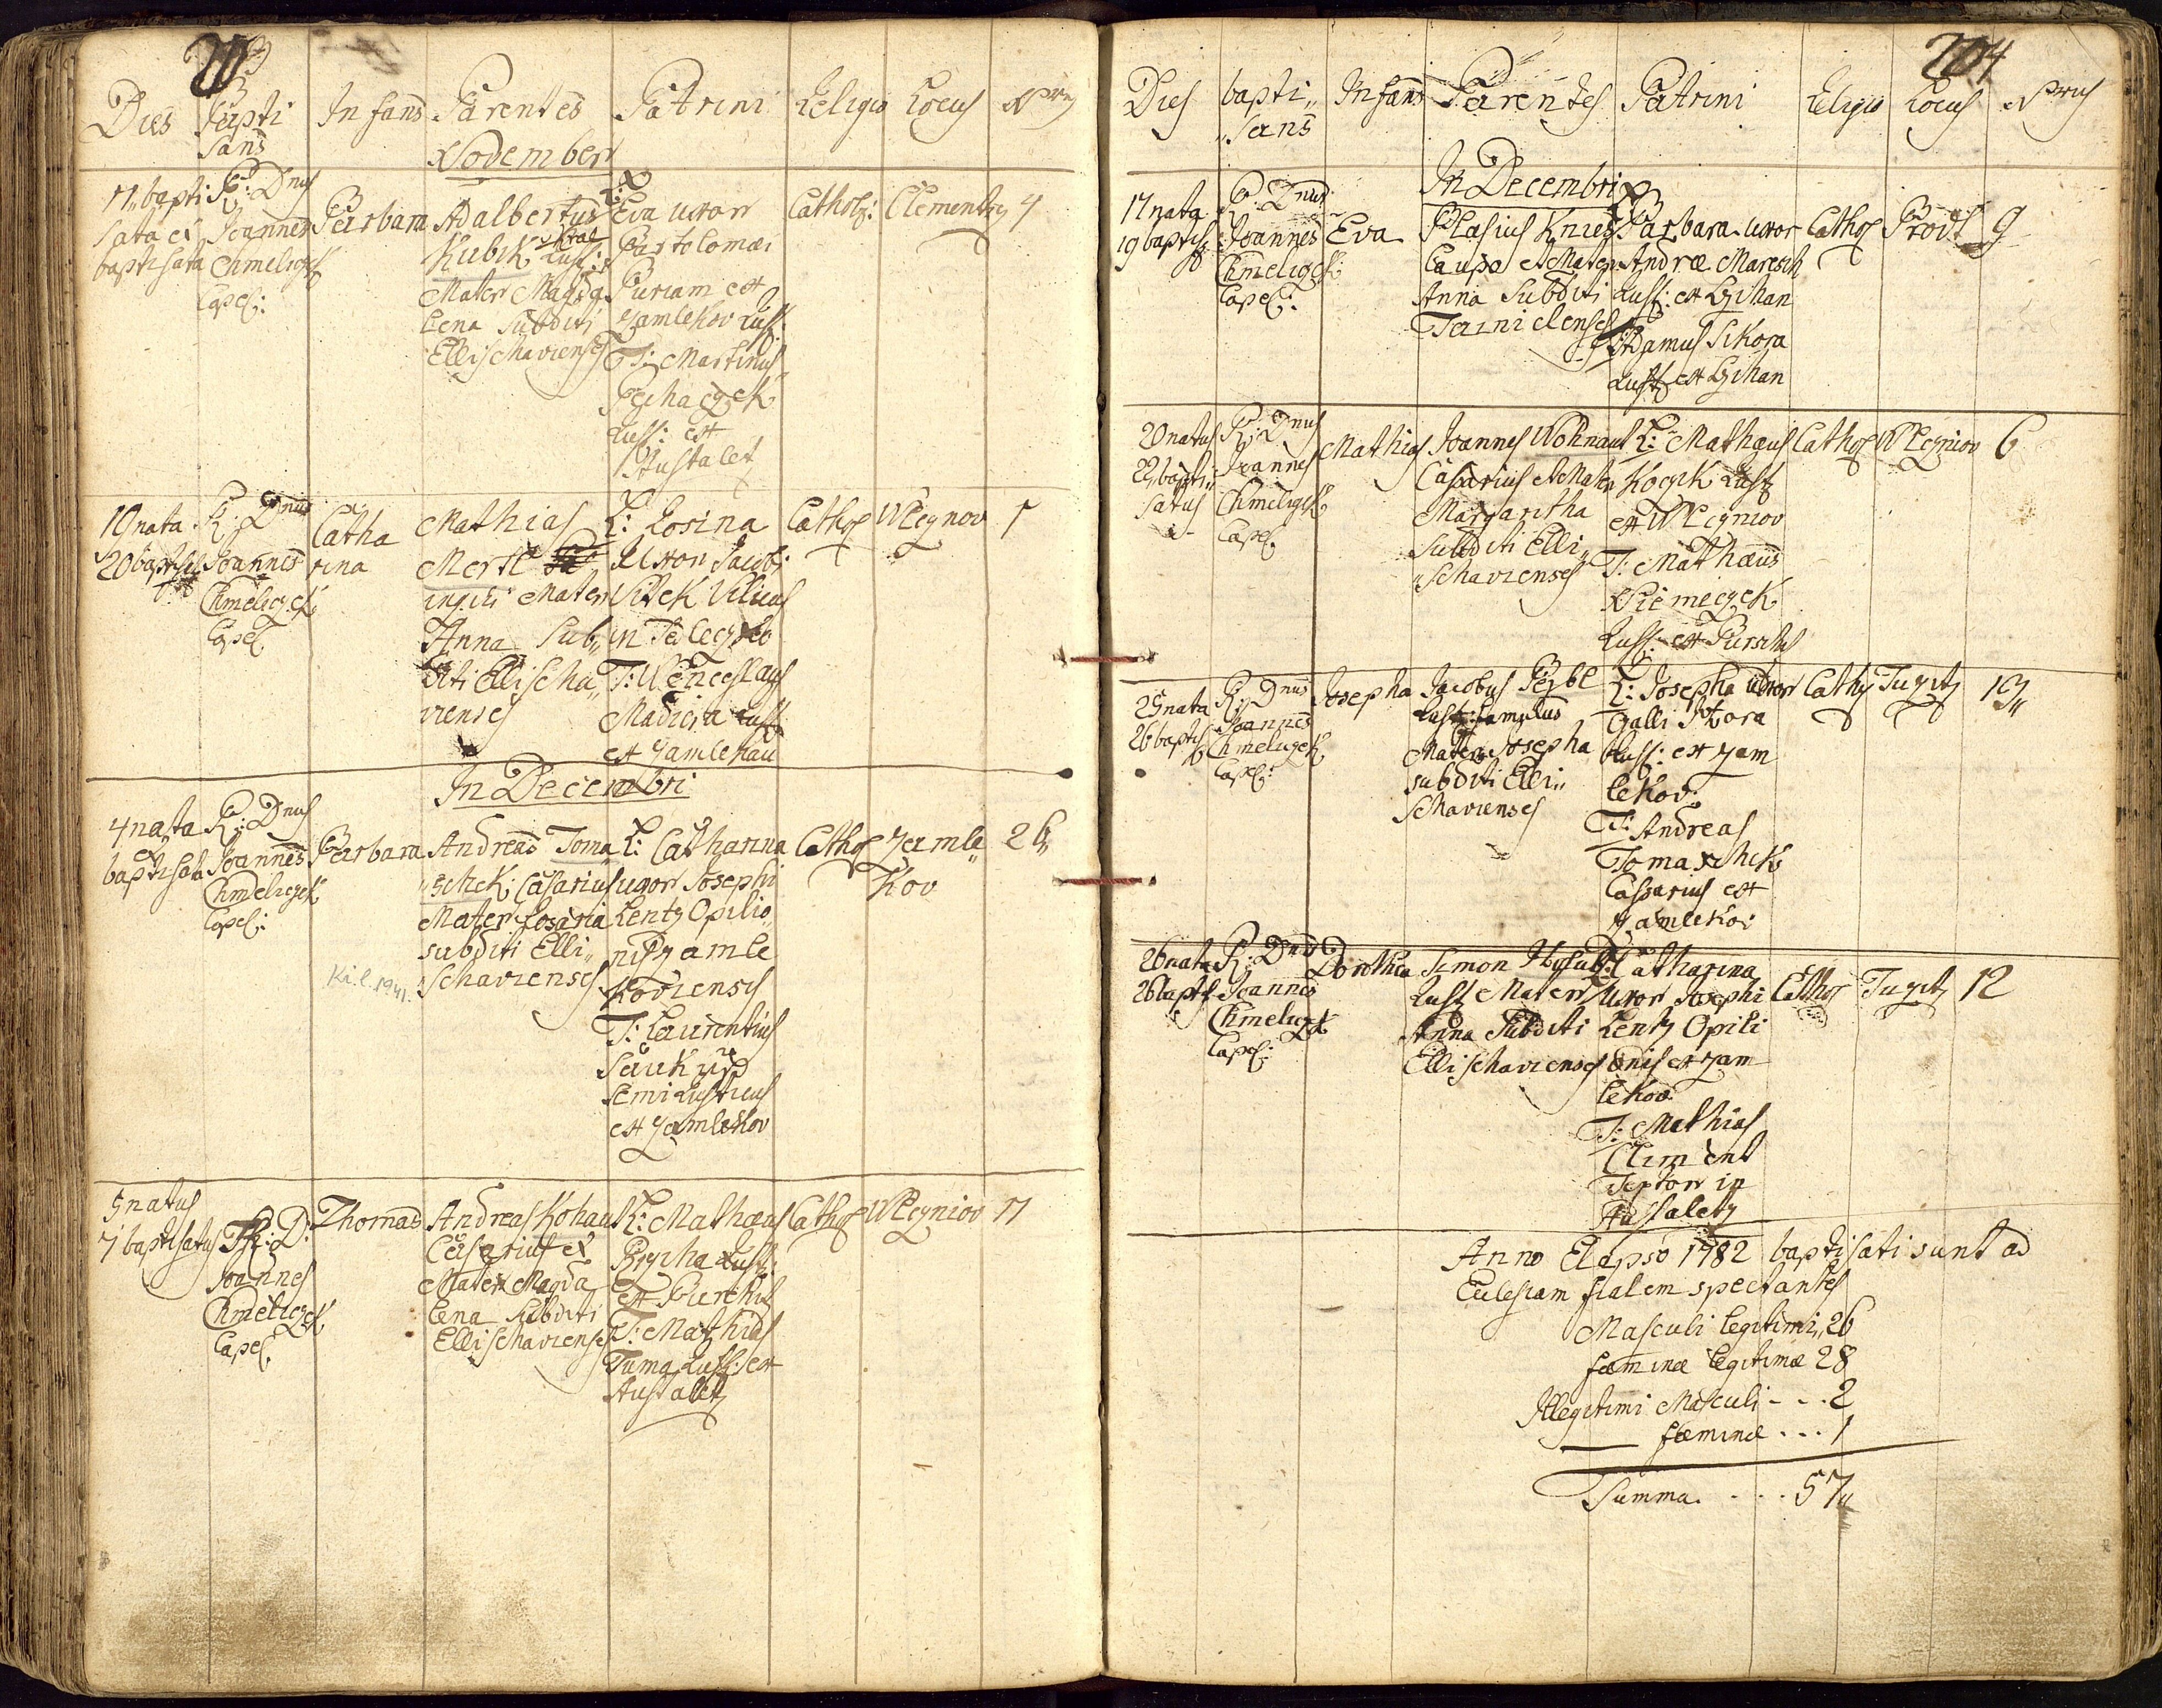 Dies Bapti Infans Parentes Patrini Religio Locus Nrus
sans
November
17 bapti
sata et
baptisata
R: Dnus
Joannes
Chmeliczek
Capel:
Barbara
Adalbertus
Kubik Rust:
Mater Magda
lena Subditi
Ellischavienses
L:
Eva uxor
Bartolomæi
Buriam ex
Jamlekov Rust:
T: Martinus
Pechaczek
Rust: ex
Hustalet
Cathol: Clementz 4
10 nata
20 baptis
R: Dnus
Joannes
Chmeliczek
Capel
Catha
rina
Mathias
Mertl
inq: Mater
Anna Sub
diti Ellischa
vienses
L: Rosina
Uxor Jacobi
Vitek Vilicus
in Sedleczko
T: Wenceslaus
Madiera Rust
ex Jamlekau
Cathol Wlczniov 1
In Decembri
4 nata
et
baptisata
R: Dnus
Joannes
Chmeliczek
Capel:
Barbara
Andreas Toma
schek Casarius
Mater Rosaria
subditi Elli
schavienses
Ká.l. 1941.
L: Catharina
uxor Josephi
Lentz Opilio
nis Jamle
koviensis
T: Laurentius
Saukup
Semirusticus
ex Jamlekov
Cathol Jamle
kov
26
5 natus
7 baptisatus
R: D:
Joannes
Chmeliczek
Capel.
Thomas
Andreas Kohaut
Casarius et
Mater Magda
lena Subditi
Ellischavienses
L: Mathæus
Brycha Rust:
ex Burckitz
T: Mathias
Tuma Rust: ex
Hustaletz
Cathol Wlczniov 17
204
Dies bapti Infans Parentes Patrini Religio Locus Nrus
sans
In Decembri
17 nata
19 baptis
R: Dnus
Joannes
Chmeliczek
Capel:
Eva
Blasius Knies
Caupo et Mater
Anna Subditi
L:
Barbara uxor
Andræ Maresch
Rust: ex Czihan
T: Adamus Sikora
Rust ex Czihan
Cathol Brod 9
20 natus
22 bapti
satus
R: Dnus
Joannes
Chmeliczek
Capel.
Mathias
Joannes Wohnaut
Casarius et Mater
Margaritha
Subditi Elli
schavienses
L: Mathæus
Koczik Rust
ex Wlczniov
T: Mathæus
Niemeczek
Rust: ex Burschitz
Cathol Wlczniov 6
25 nata
26 baptis
R: Dnus
Joannes
Chmeliczek
Capel:
Josepha
Jacobus Peizbl
Rust: famulus
Mater Josepha
subditi Elli
schavienses
L: Josepha Uxor
Galli Skora
Rust: ex Jam
lekov
T: Andreas
Tomaschek
Casarius ex
Jamlekov
Cathol Tugitz 13
26 nata
26 baptis
R: Dnus
Joannes
Chmeliczek
Capel:
Dorothea
Simon
Rust Mater
Anna Subditi
Ellischavienses
L: Catharina
Uxor Josephi
Lentz Opili
onis ex Jam
lekov
T: Mathias
Climent
Textor in
Hustaletz
Cathol Tugitz 12
Anno Elapso 1782 baptisati sunt ad
Eclesiam flalem spectantes
Masculi legitimi 26
fæminæ legitimæ 28
Illegitimi Masculi - - - 2
fæminæ . . . 1
Summa. . . . 57